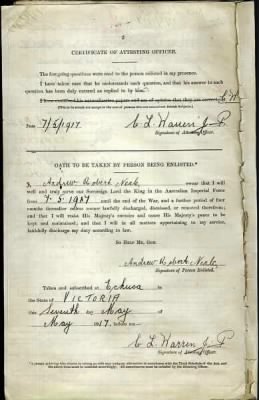 2
CERTIFICATE OF ATTESTING OFFICER.
The foregoing questions were read to the person enlisted in my presence.
I have taken care that he understands each question, and that his answer to each
question has been duly entered as replied to by him.
I have examined his naturalization papers and am of opinion that they are correct. C W
Date 7/5/1917
C L Warren J. P.
Signature of Attesting Officer.
OATH TO BE TAKEN BY PERSON BEING ENLISTED.*
I, Andrew Robert Neale swear that I will
well and truly serve our Sovereign Lord the King in the Australian Imperial Force
from 7.5.1917 until the end of the War, and a further period of four
months thereafter unless sooner lawfully discharged, dismissed, or removed therefrom;
and that I will resist His Majesty's enemies and cause His Majesty's peace to be
kept and maintained; and that I will in all matters appertaining to my service,
faithfully discharge my duty according to law.
SO HELP ME, GOD.
Andrew Robert Neale
Signature of Person Enlisted.
Taken and subscribed at Echuca in
the State of VICTORIA this
Seventh day May of
May 1917, before me—
C L Warren J. P
Signature of Attesting Officer.